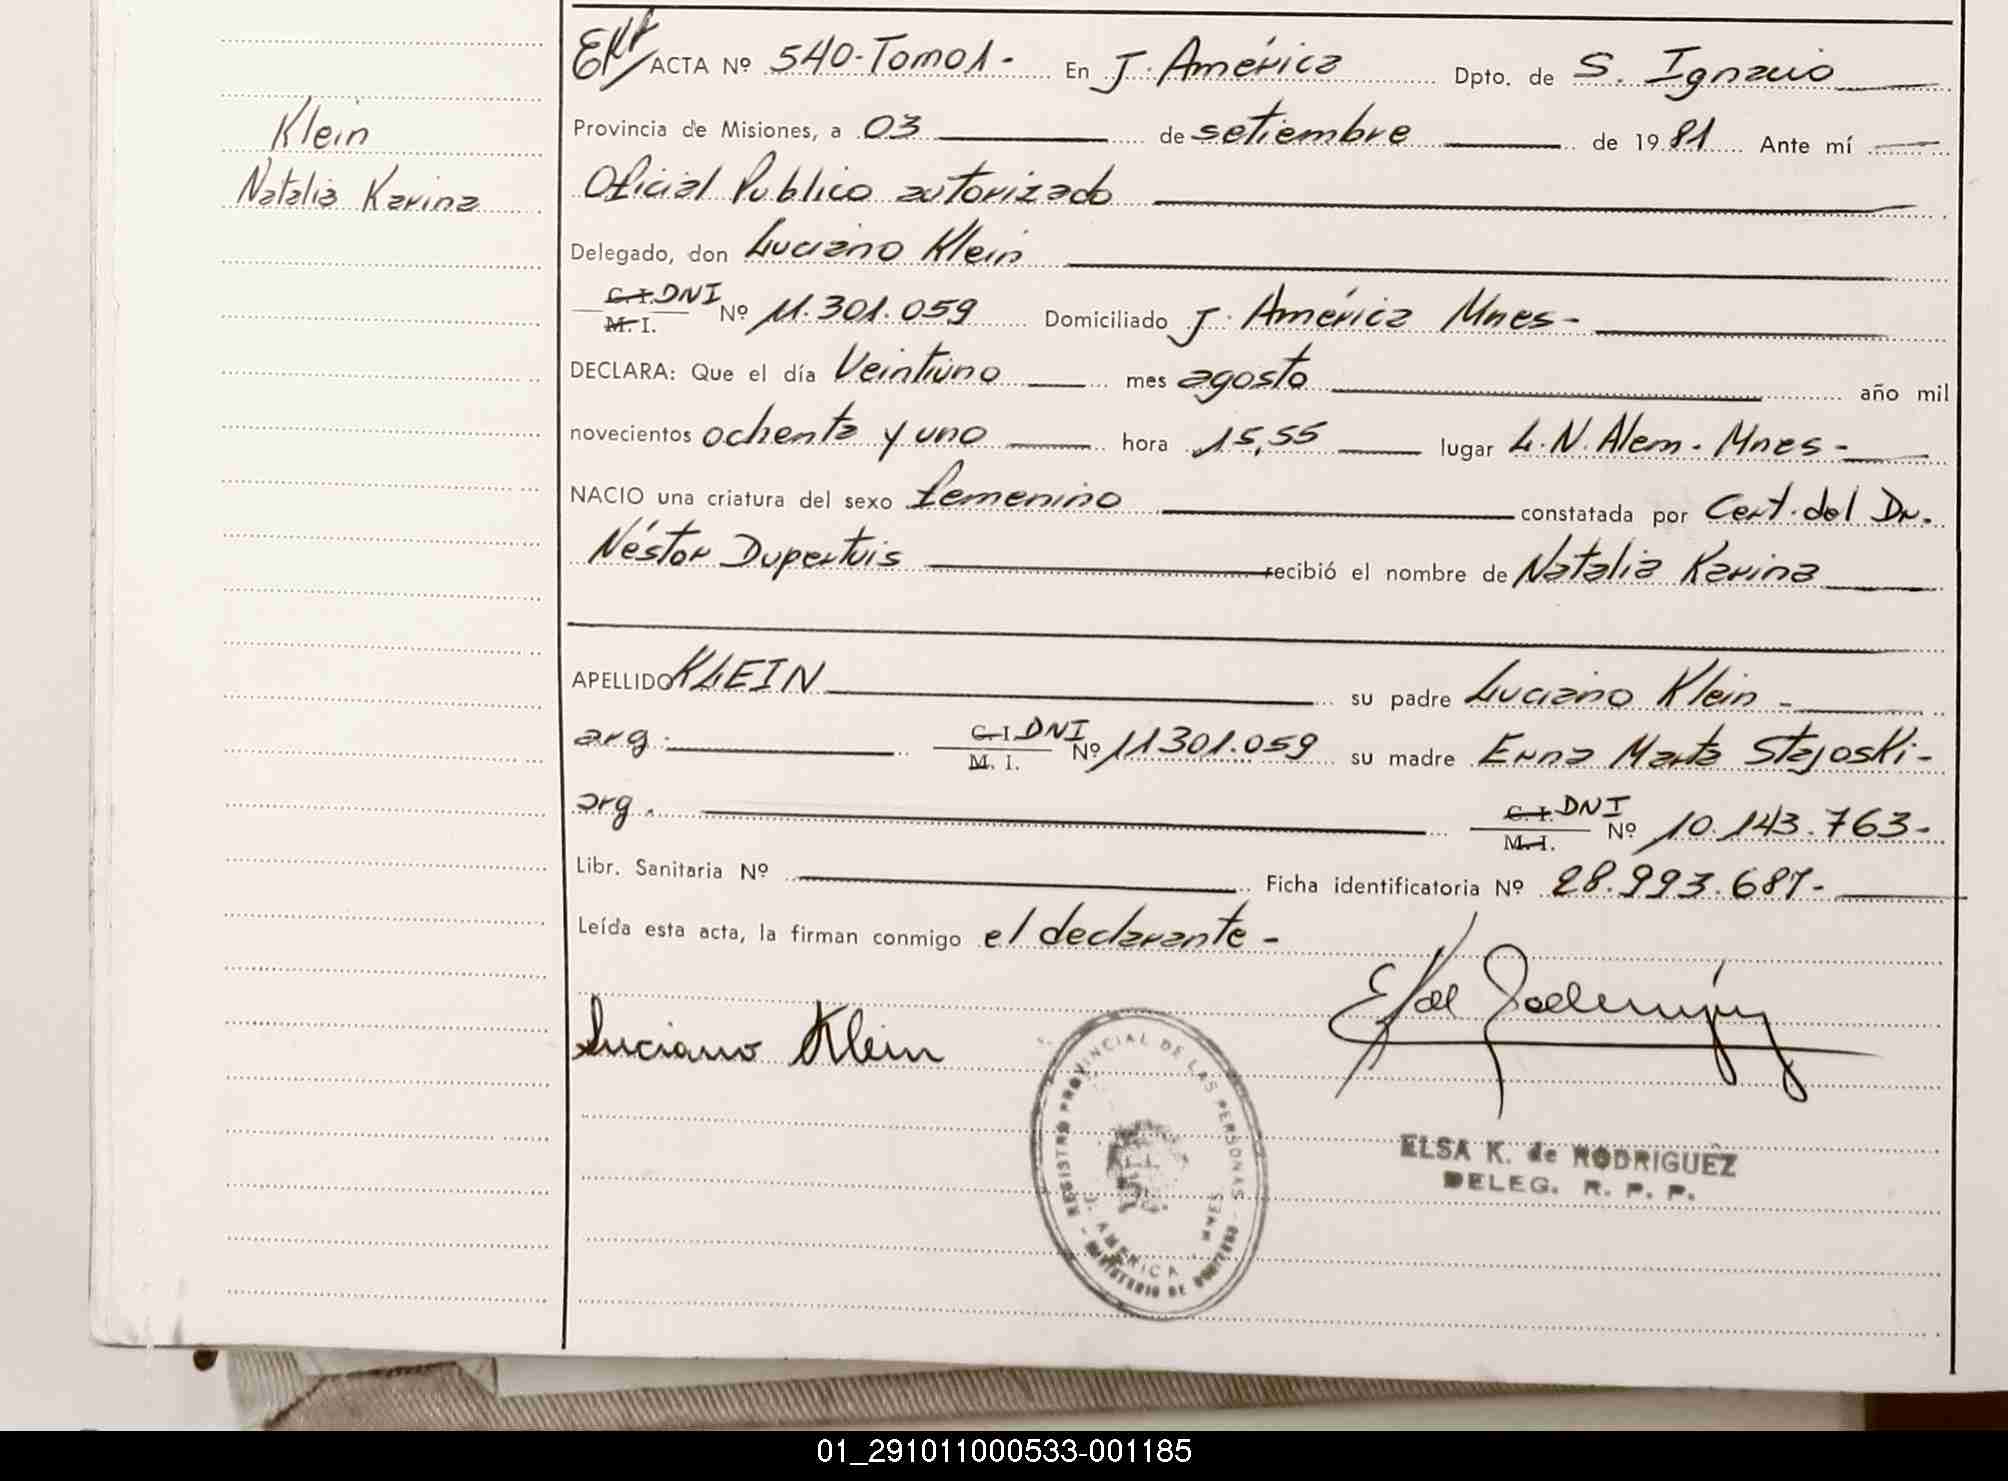 EKR ACTA Nº 540-Tomo1- En J. América Dpto. de S. Ignacio
Klein
Natalia Karina
Provincia de Misiones, a 03 de setiembre de 1981 Ante mí
Oficial Publico autorizado
Delegado, don Luciano Klein
C.I. DNI M.I. Nº 11.301.059 Domiciliado J. América Mnes-
DECLARA: Que el día Veintiuno mes agosto año mil
novecientos ochenta y uno hora 15,55 lugar L.N. Alem. Mnes-
NACIO una criatura del sexo femenino constatada por Cert. del Dr.
Néstor Dupertuis recibió el nombre de Natalia Karina
APELLIDO KLEIN su padre Luciano Klein -
arg. C.I. DNI M.I. Nº 11301.059 su madre Erna Marta Stajoski-
arg. C.I. DNI M.I. Nº 10.143.763-
Libr. Sanitaria Nº Ficha identificatoria Nº 28.993.687-
Leída esta acta, la firman conmigo el declarante -
Luciano Klein
REGISTRO PROVINCIAL DE LAS PERSONAS - MINISTERIO DE GOBIERNO -
J. AMERICA - MNES
ELSA K. de RODRIGUEZ
DELEG. R. P. P.
01_291011000533-001185